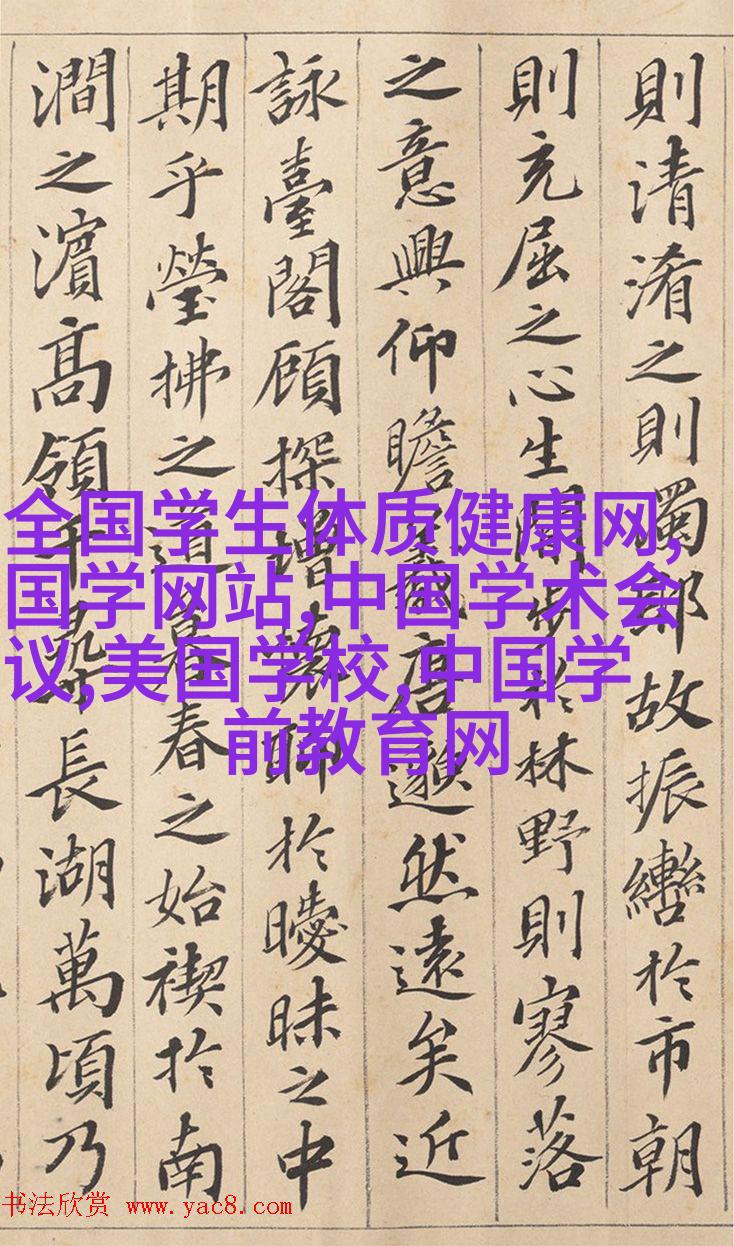 則清淆之則濁邪故振轡於市朝
則充屈之心生閒步於林野則寥落
之意興仰瞻羲唐邈然遠矣近
詠臺閣顧探增懷聊於曖昧之中
期乎瑩拂之道暮春之始禊於南
澗之濱高領千尋長湖萬頃乃
全国学生体质健康网,
国学网站,中国学术会
议,美国学校,中国学
前教育网
书法欣赏 www.yac8.com